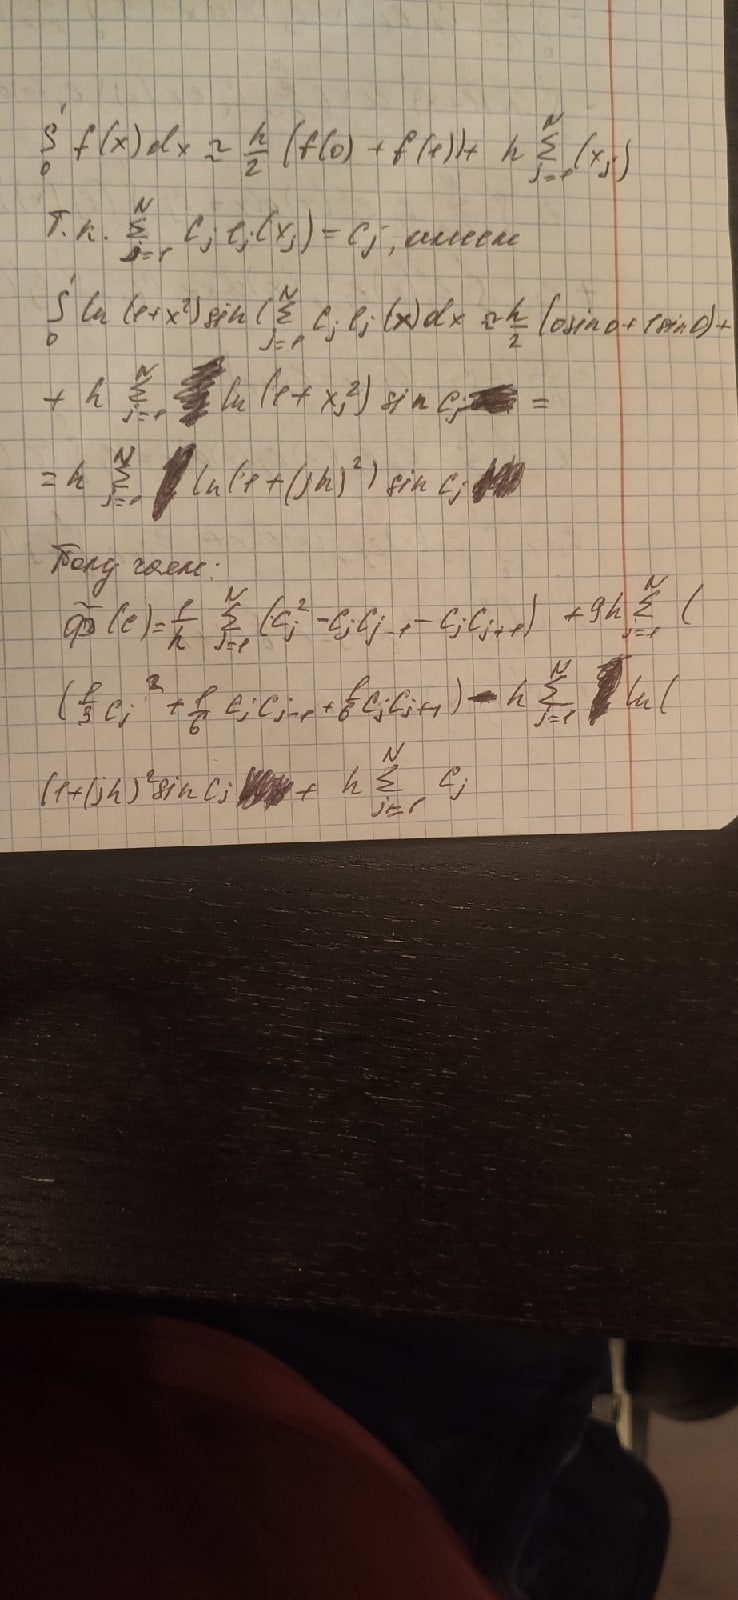 ∫₀¹ f(x)dx ≈ h/2 (f(0) + f(1)) + h Σ_{j=1}^{N} (x_j)
Т.к. Σ_{j=1}^{N} c_j e_j(x_j) = c_j, имеем
∫₀¹ ln(1+x²) sin(Σ_{j=1}^{N} c_j e_j(x)dx ≈ h/2 (0sin0 + 1sin0) +
+ h Σ_{j=1}^{N} ln(1+x_j²) sin c_j =
= h Σ_{j=1}^{N} ln(1+(jh)²) sin c_j
Получаем:
(c) = 1/h Σ_{j=1}^{N} (c_j² - c_j c_{j-1} - c_j c_{j+1}) + 9h Σ_{j=1}^{N} (
(1/3 c_j² + 1/6 c_j c_{j-1} + 1/6 c_j c_{j+1}) - h Σ_{j=1}^{N} ln(
(1+(jh)² sin c_j + h Σ_{j=1}^{N} c_j